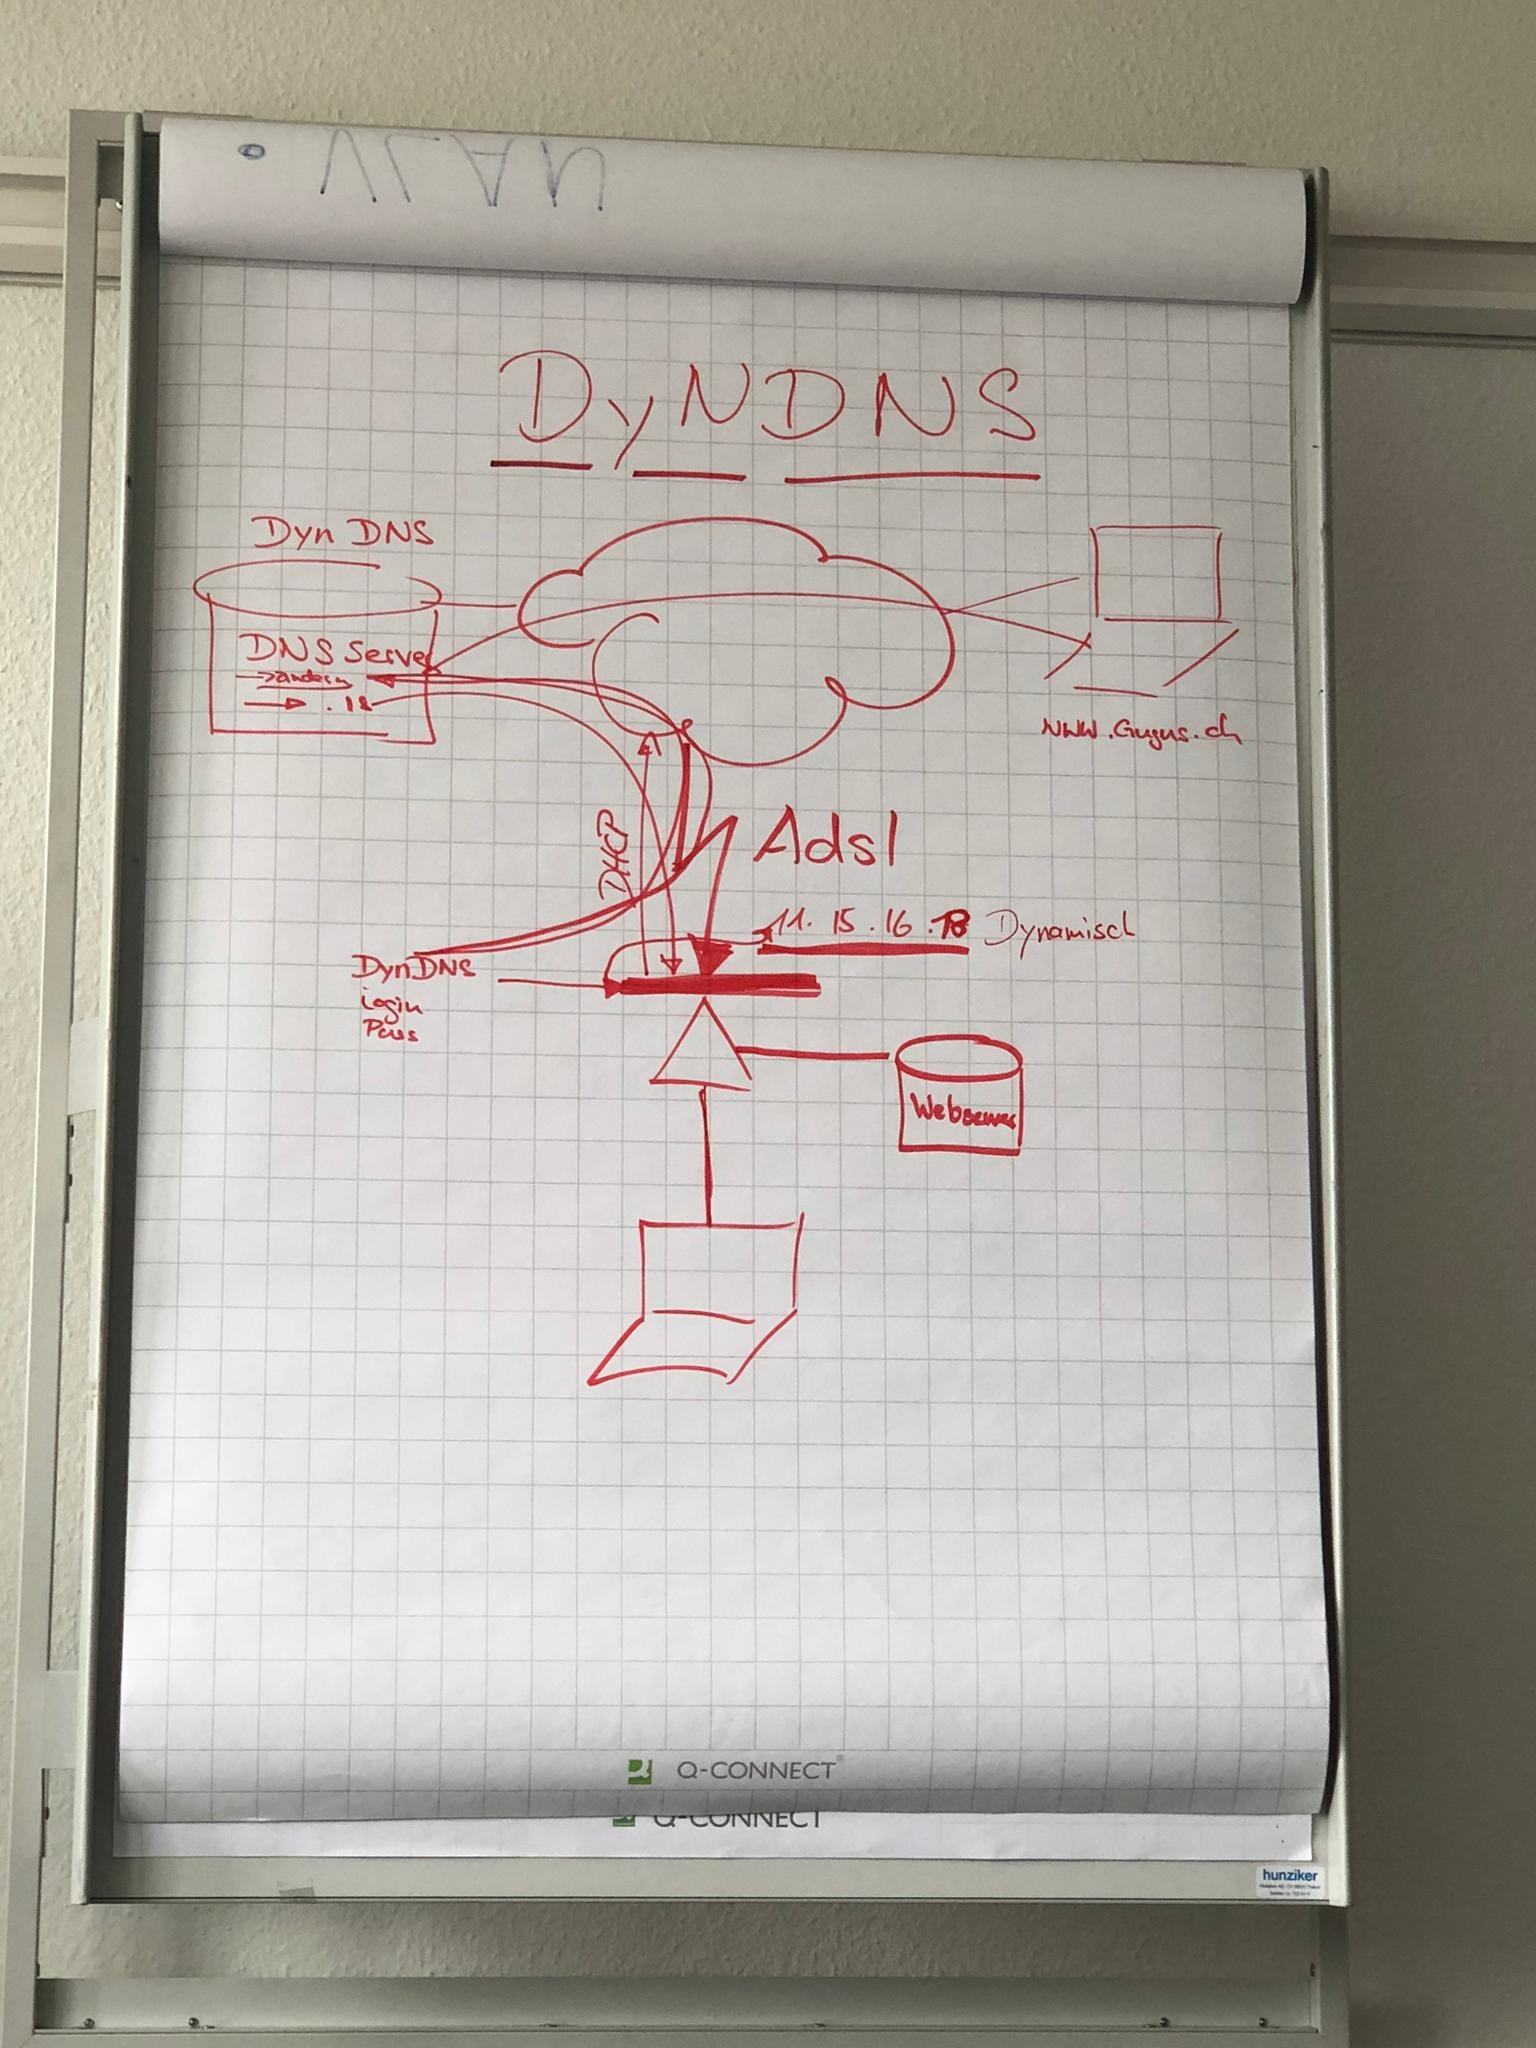 • VLAN
DyNDNS
Dyn DNS
DNS Server
→ändern
→ .18
www.Gugus.ch
DHCP
Adsl
11.15.16.18 Dynamisch
DynDNS
Login
Pass
Webserver
Q-CONNECT®
Q-CONNECT
hunziker